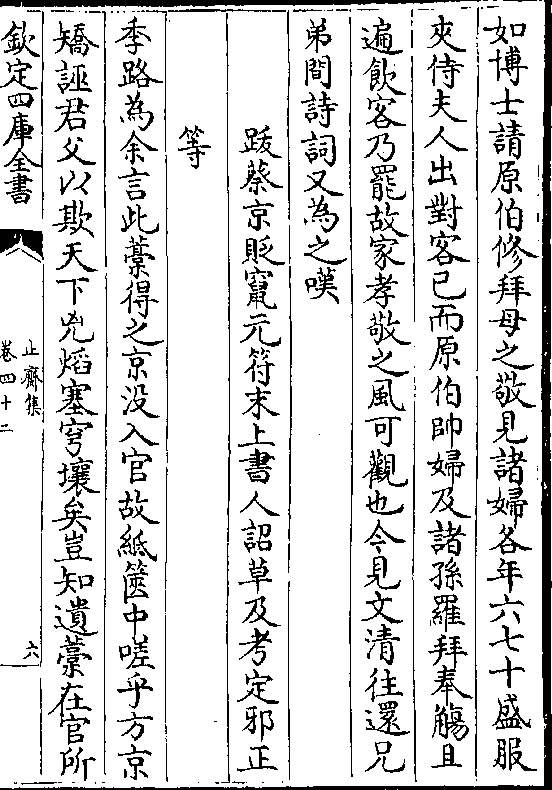 如博士請原伯修拜母之敬見諸婦各年六七十盛服
夾侍夫人出對客已而原伯帥婦及諸孫羅拜奉觴且
遍飲客乃罷故家孝敬之風可觀也今見文清往還兄
弟間詩詞又為之嘆
跋蔡京貶竄元符末上書人詔草及考定邪正
等
季路為余言此藳得之京没入官故紙篋中嗟乎方京
矯誣君父以欺天下兇熖塞穹壤矣豈知遺藳在官所
欽定四庫全書
止齋集
卷四十二
六